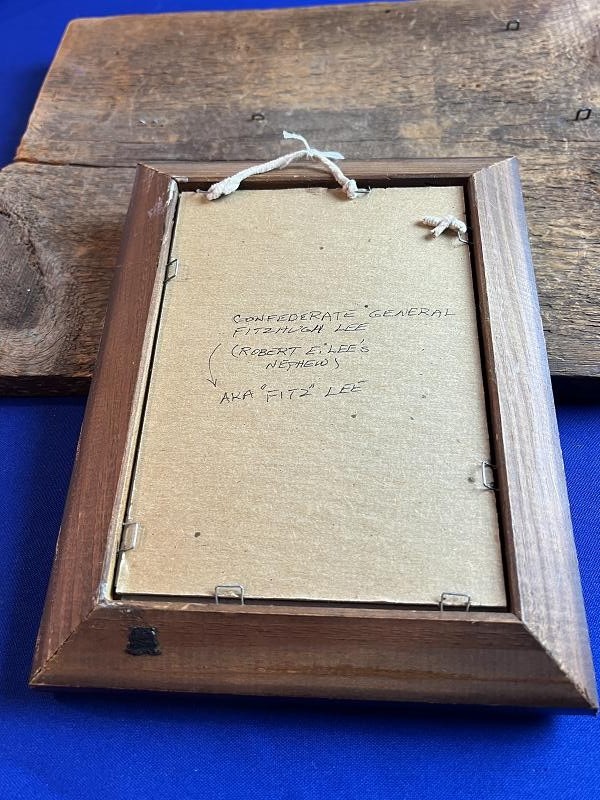 CONFEDERATE GENERAL
FITZHUGH LEE
(ROBERT E. LEE'S
NEPHEW)
AKA "FITZ" LEE